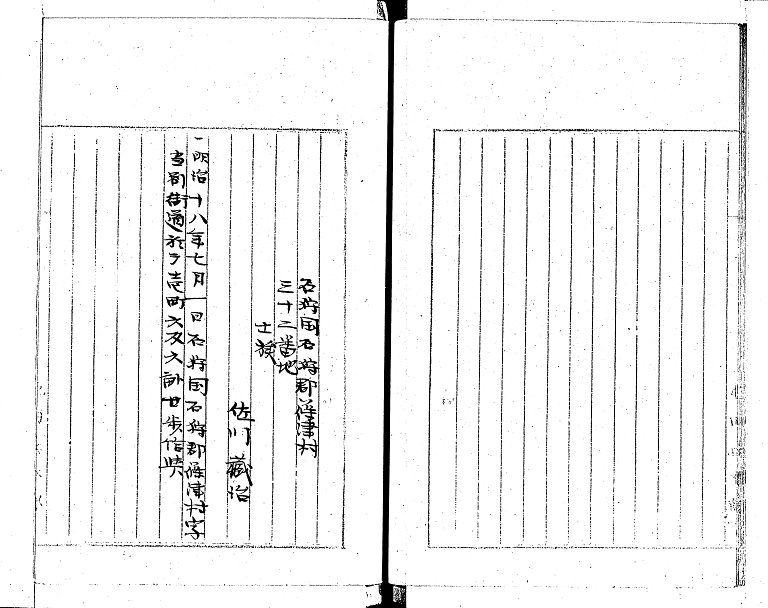 石狩国石狩郡篠津村
三十二番地
士族
佐川蔵治
一明治十八年七月一日石狩国石狩郡篠津村字
当別街道於テ壱町六反六畝廿歩